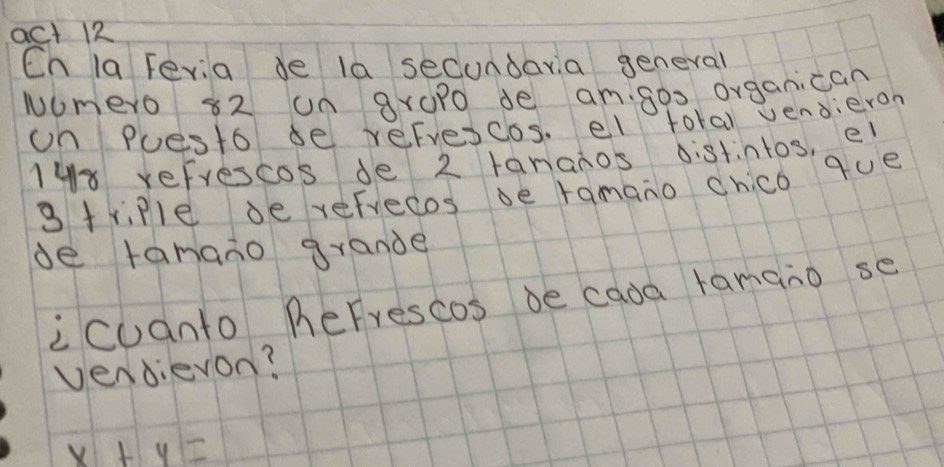 act 12
En la Feria de la secundaria general
Numero 82 un grupo de amigos organican
un Puesto de reFrescos. el total vendieron
148 reFrescos de 2 tamaños distintos, el
3 triple de reFrecos de tamaño chico que
de tamaño grande
¿cuanto ReFrescos de cada tamaño se
vendieron?
x + y =